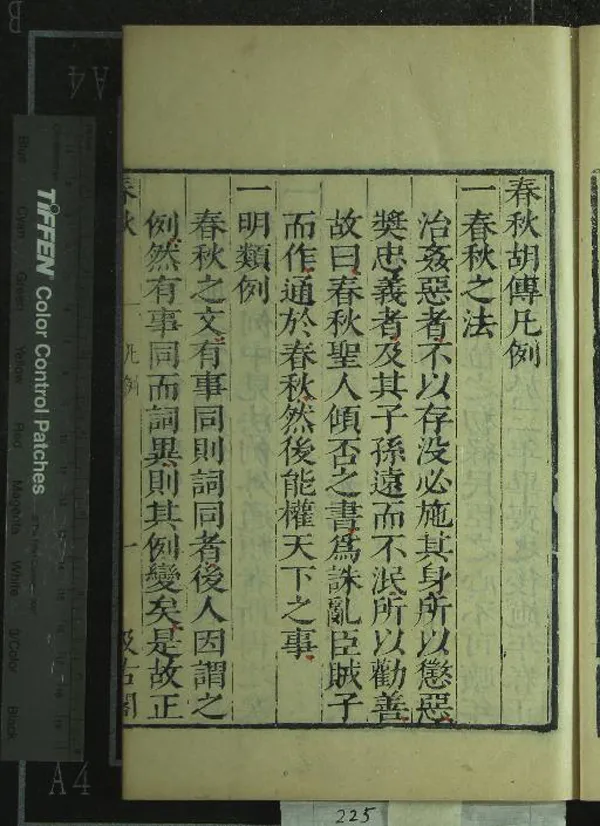 春秋胡傳凡例
一春秋之法
治姦惡者不以存没必施其身所以懲惡
奬忠義者及其子孫遠而不泯所以勸善
故曰春秋聖人傾否之書爲誅亂臣賊子
而作通於春秋然後能權天下之事
一明類例
春秋之文有事同則詞同者後人因謂之
例然有事同而詞異則其例變矣是故正
春秋 凡例 一 汲古閣
TIFFEN Color Control Patches
Blue Cyan Green Yellow Red Magenta White 3/Color Black
A4
A4
B
225